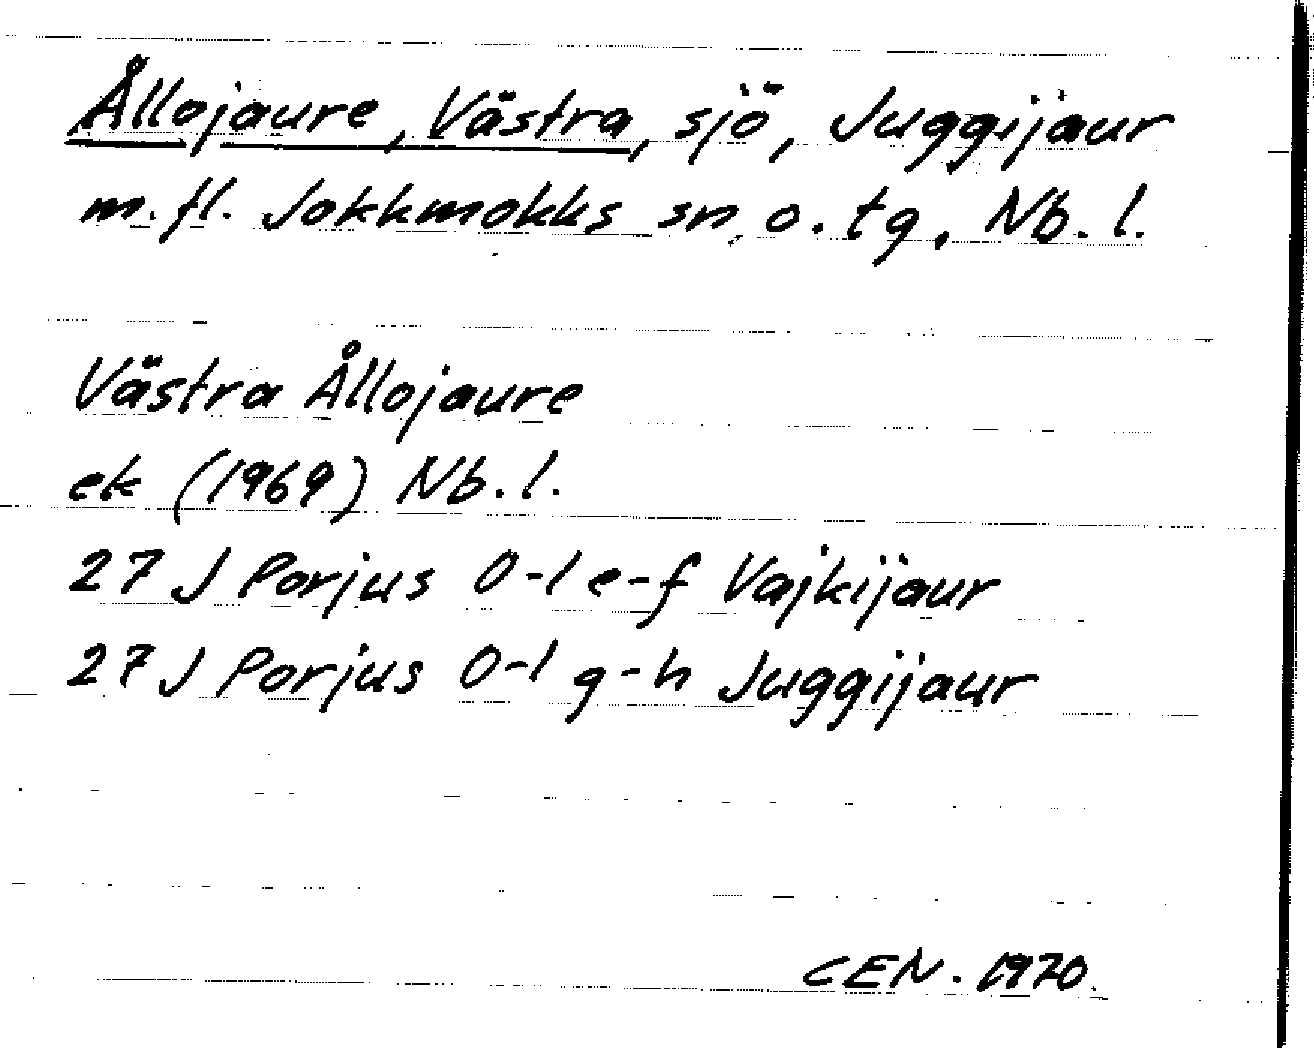 Ållojaure, Västra, sjö, Juggijaur
m.fl. Jokkmokks sn o. tg, Nb.l.
Västra Ållojaure
ek (1969) Nb.l.
27 J Porjus 0-1 e-f Vajkijaur
27 J Porjus 0-1 g-h Juggijaur
CEN. 1970.